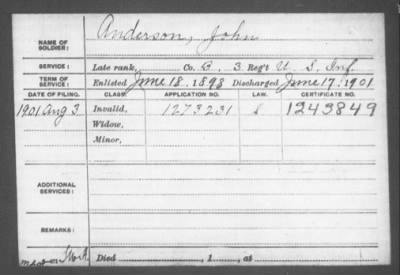 NAME OF SOLDIER: Anderson, John
SERVICE: Late rank, Co. G, 3 Reg't U. S. Inf.
TERM OF SERVICE: Enlisted June 18, 1898 Discharged June 17, 1901
DATE OF FILING. CLASS. APPLICATION NO. LAW. CERTIFICATE NO.
1901 Aug 3 Invalid, 1273231 1243849
Widow,
Minor,
ADDITIONAL SERVICES:
REMARKS:
Died , 1 , at